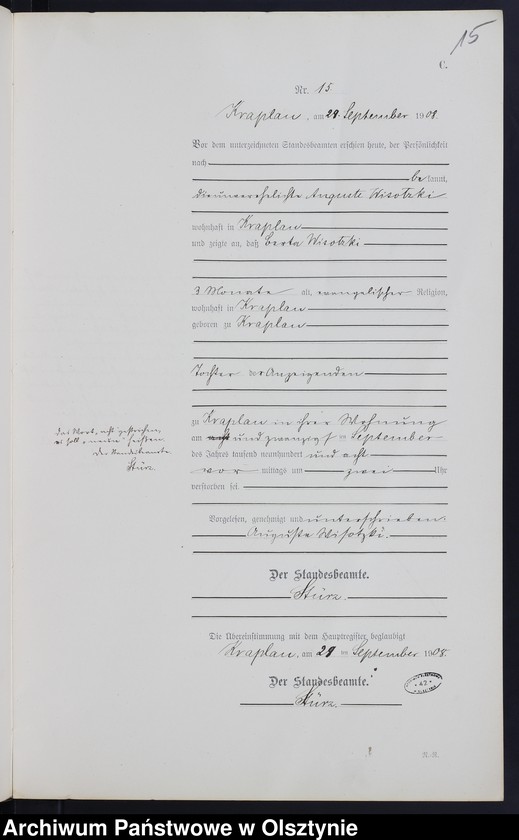 15
C.
Nr. 15
Kraplau, am 29. September 1908.
Vor dem unterzeichneten Standesbeamten erschien heute, der Persönlichkeit
nach
bekannt,
die unverehelichte Auguste Wisotzki
wohnhaft in Kraplau
und zeigte an, daß Berta Wisotzki
3 Monate alt, evangelischer Religion,
wohnhaft in Kraplau
geboren zu Kraplau
Tochter der Anzeigenden
zu Kraplau in ihrer Wohnung
am acht und zwanzigsten September
des Jahres tausend neunhundert und acht
vor mittags um zwei Uhr
verstorben sei.
Das Wort "acht" gestrichen,
es soll "neun" heißen.
Der Standesbeamte
Stürz
Vorgelesen, genehmigt und unterschrieben:
Auguste Wisotzki.
Der Standesbeamte.
Stürz.
Die Übereinstimmung mit dem Hauptregister beglaubigt
Kraplau, am 29 ten September 1908.
Der Standesbeamte.
Stürz.
Archiwum Państwowe w Olsztynie